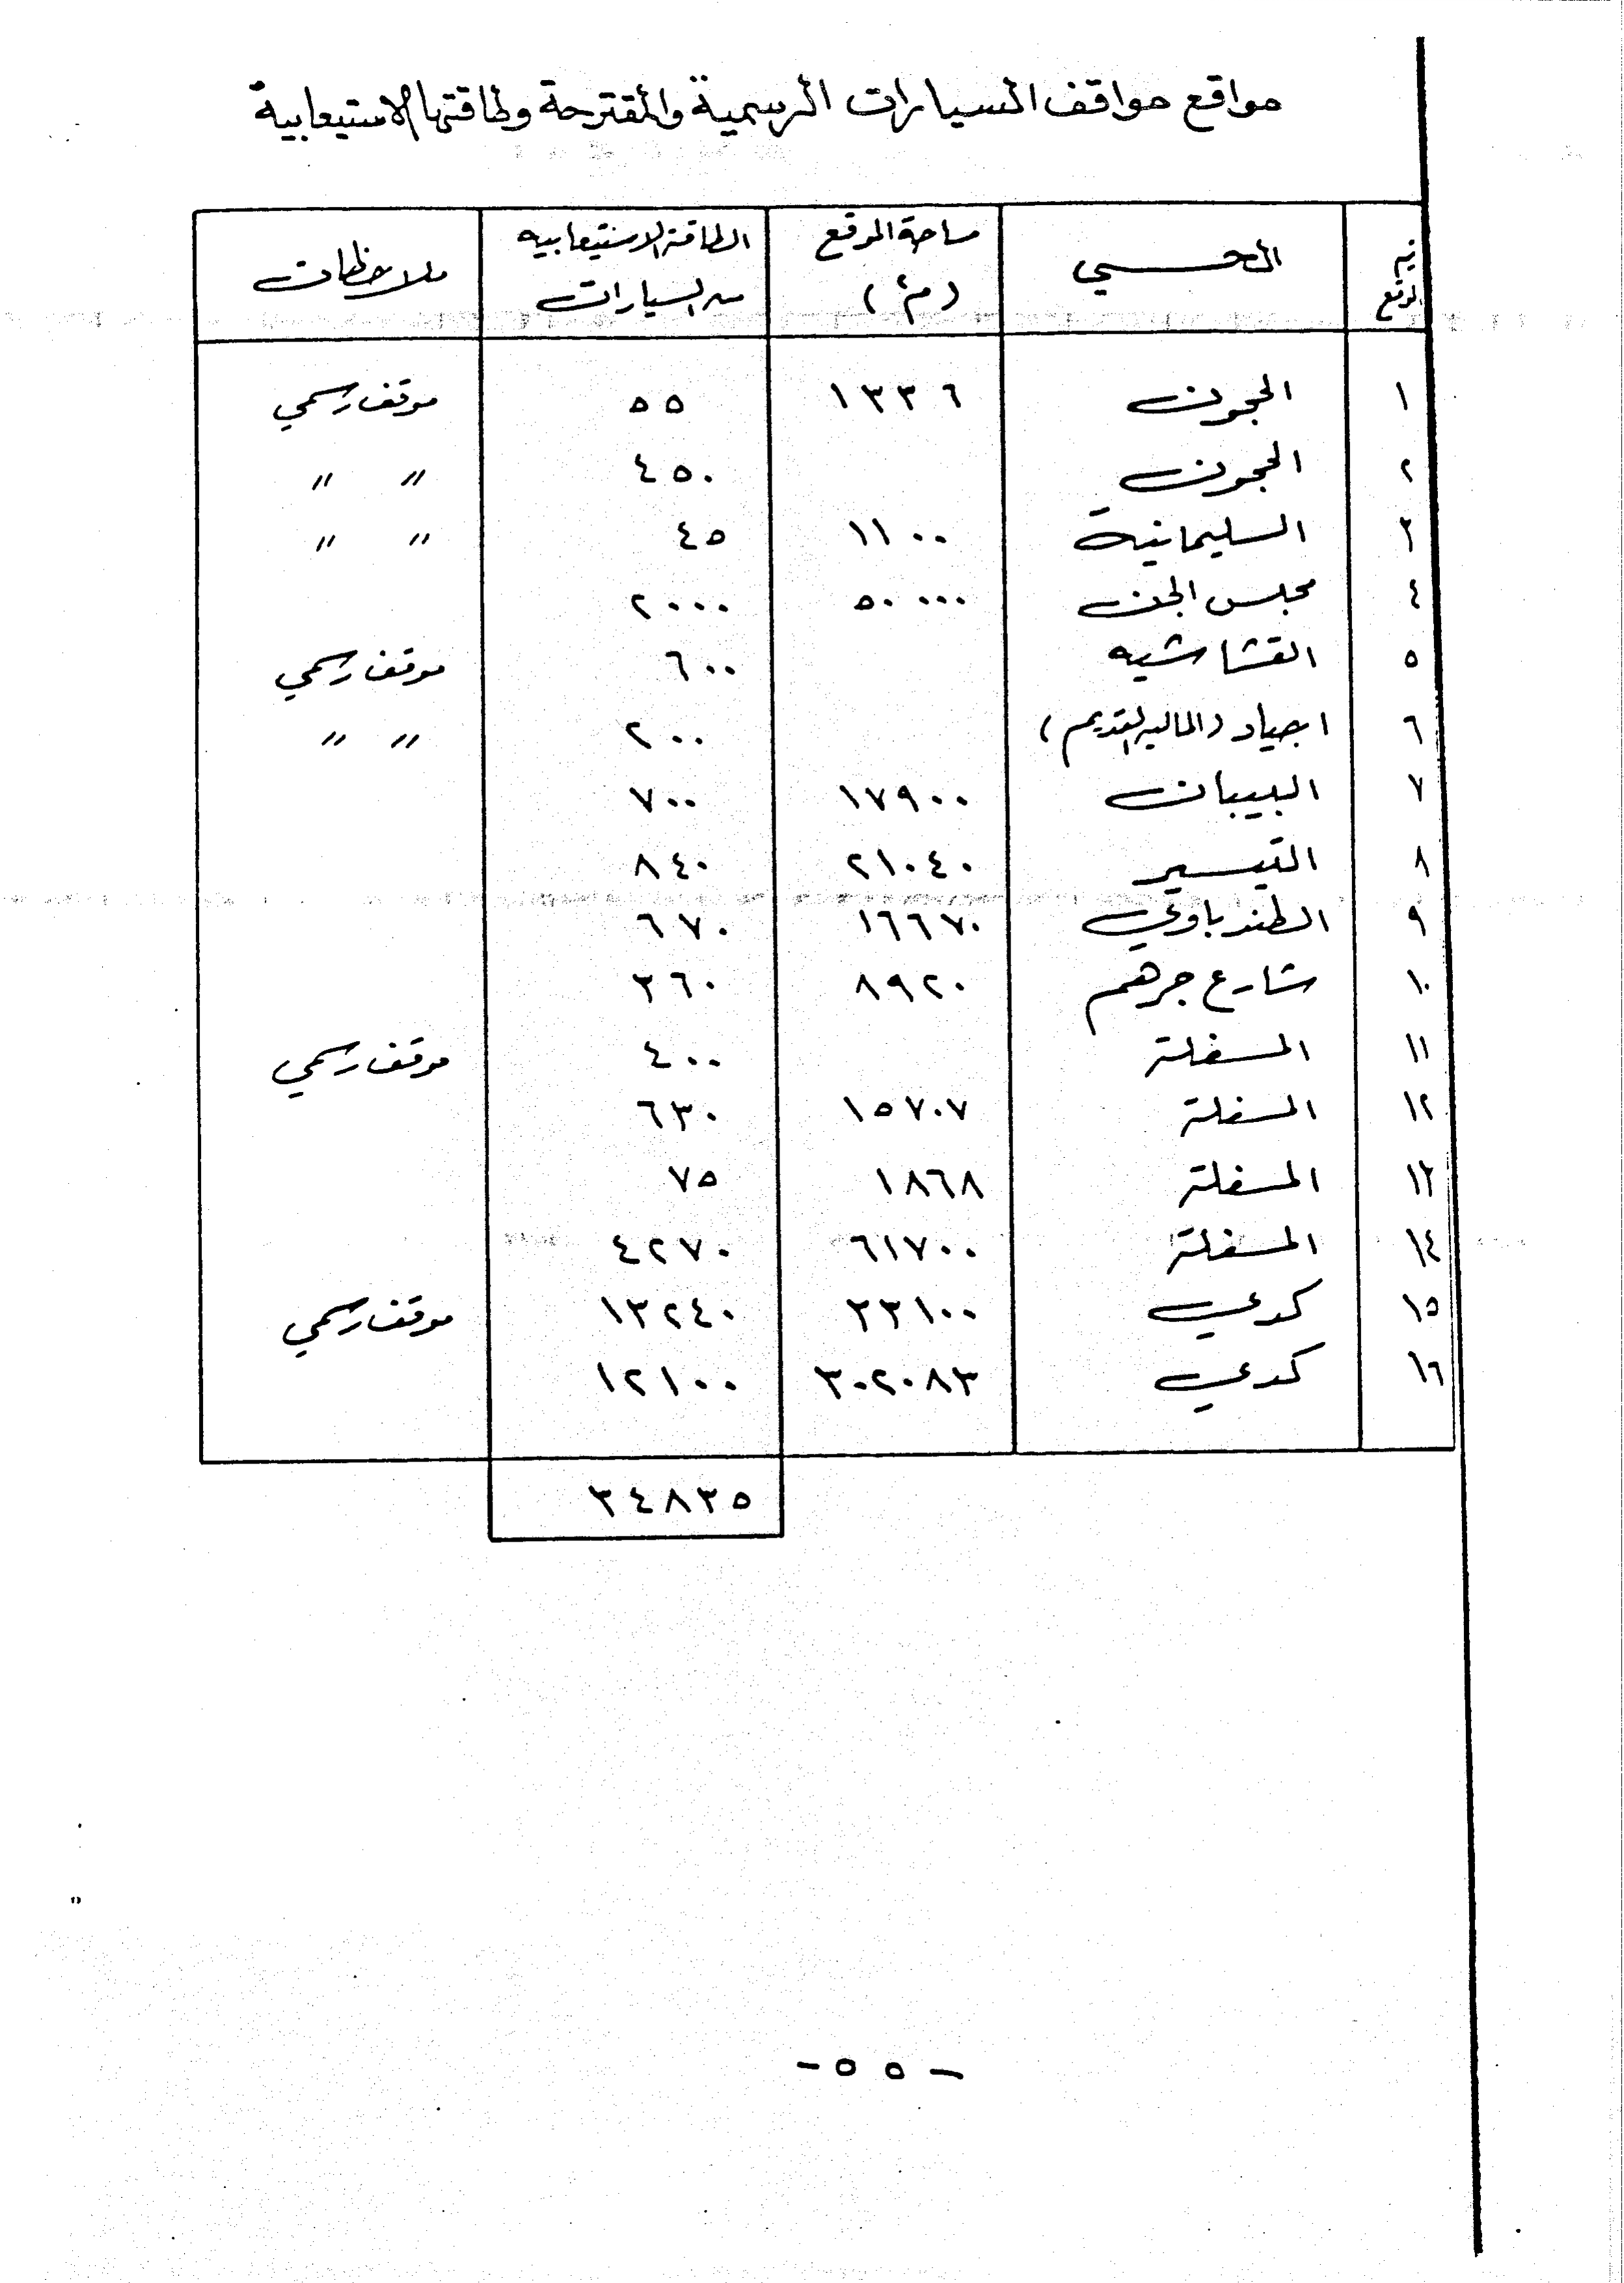 مواقع مواقف السيارات الرسمية والمقترحة وطاقتها الاستيعابية
رقم الموقع | الحي | مساحة الموقع (م٢) | الطاقة الاستيعابيه من السيارات | ملاحظات
١ | الحجون | ١٣٣٦ | ٥٥ | موقف رسمي
٢ | الحجون | | ٤٥٠ | " "
٣ | السليمانية | ١١٠٠ | ٤٥ | " "
٤ | مجلس الجن | ٥٠٠٠٠ | ٢٠٠٠
٥ | القشاشيه | | ٦٠٠ | موقف رسمي
٦ | اجياد (الماليه القديم) | | ٢٠٠ | " "
٧ | البيبان | ١٧٩٠٠ | ٧٠٠
٨ | التيسير | ٢١٠٤٠ | ٨٤٠
٩ | الطندباوي | ١٦٦٧٠ | ٦٧٠
١٠ | شارع جرهم | ٨٩٢٠ | ٣٦٠
١١ | المسفلة | | ٤٠٠ | موقف رسمي
١٢ | المسفلة | ١٥٧٠٧ | ٦٣٠
١٣ | المسفلة | ١٨٦٨ | ٧٥
١٤ | المسفلة | ٦١٧٠٠ | ٤٢٧٠
١٥ | كدي | ٣٣١٠٠ | ١٣٢٤٠ | موقف رسمي
١٦ | كدي | ٣٠٢٠٨٣ | ١٢١٠٠
٣٤٨٣٥
- ٥٥ -